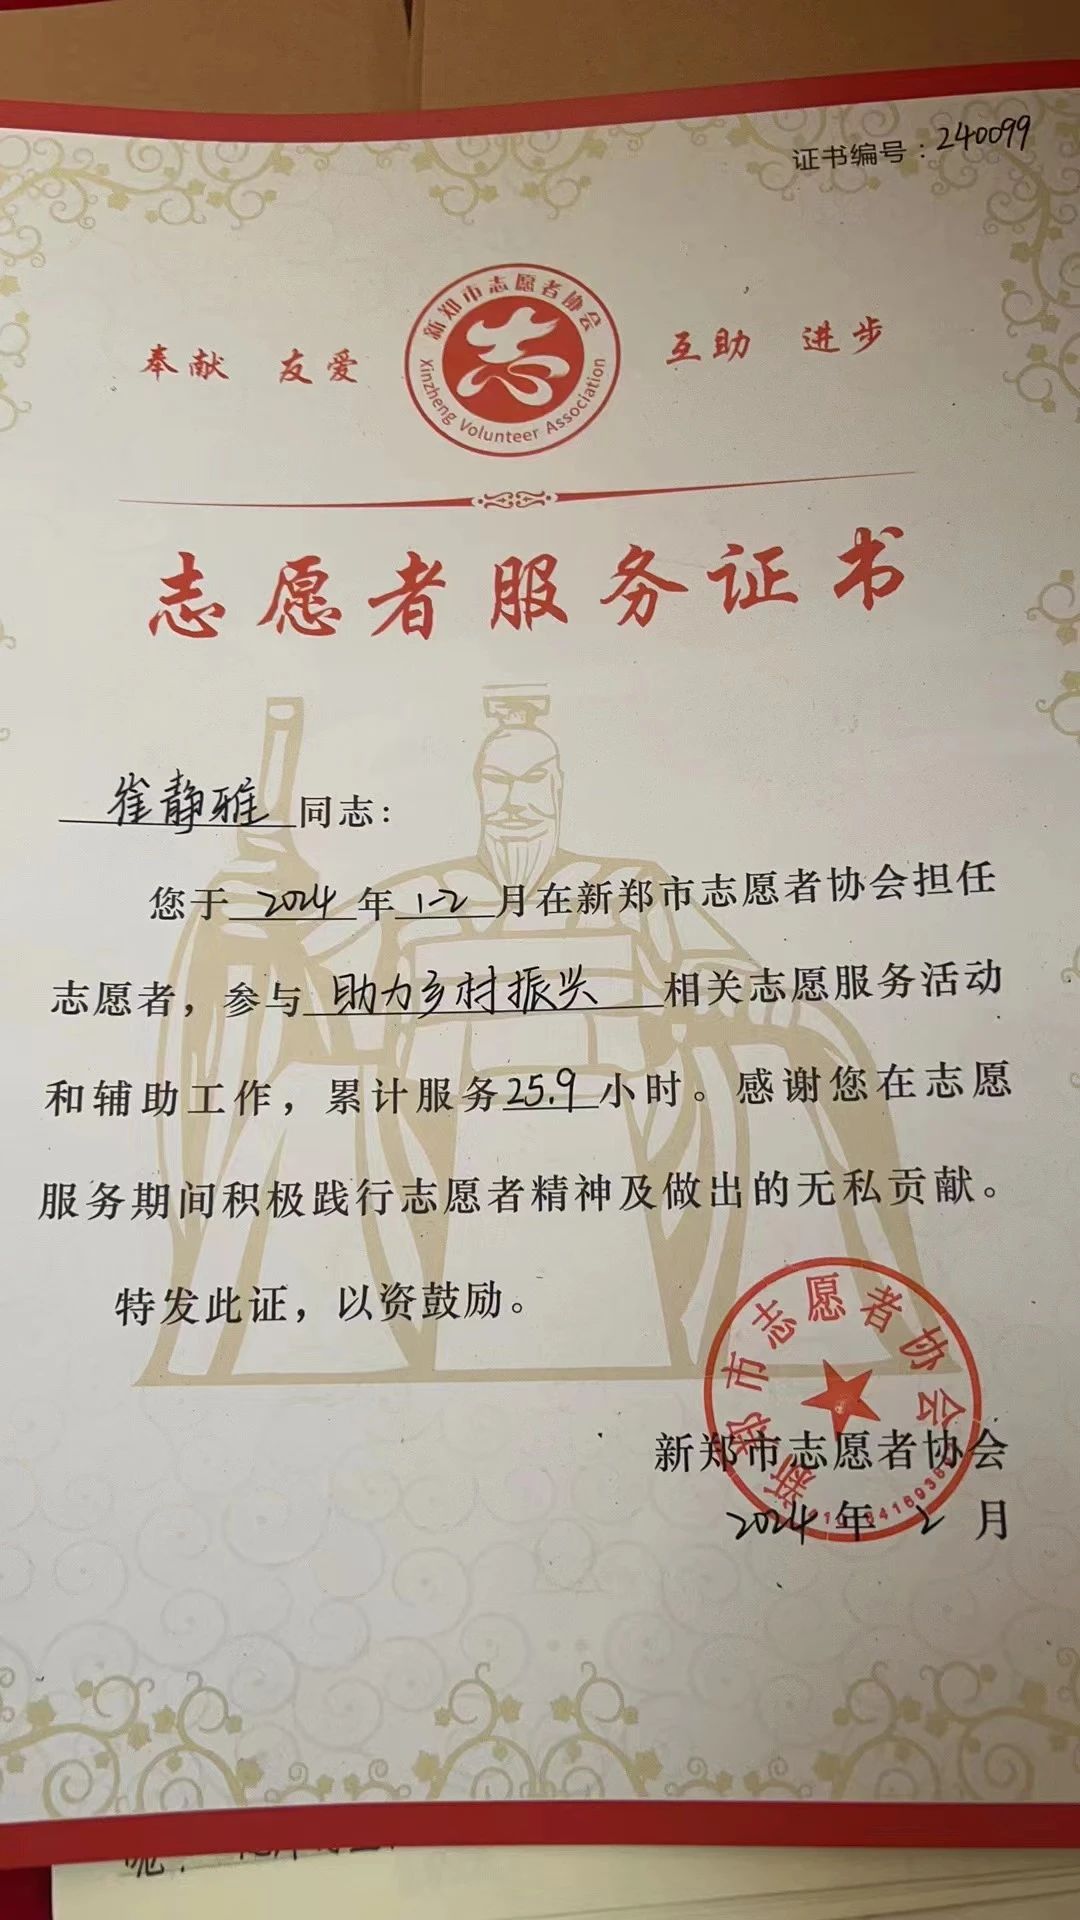 证书编号：240099
新郑市志愿者协会
奉献 友爱 志 互助 进步
Xinzheng Volunteer Association
志愿者服务证书
崔静雅同志：
您于2024年1-2月在新郑市志愿者协会担任
志愿者，参与助力乡村振兴相关志愿服务活动
和辅助工作，累计服务25.9小时。感谢您在志愿
服务期间积极践行志愿者精神及做出的无私贡献。
特发此证，以资鼓励。
新郑市志愿者协会
新郑市志愿者协会
2024年2月
呢？